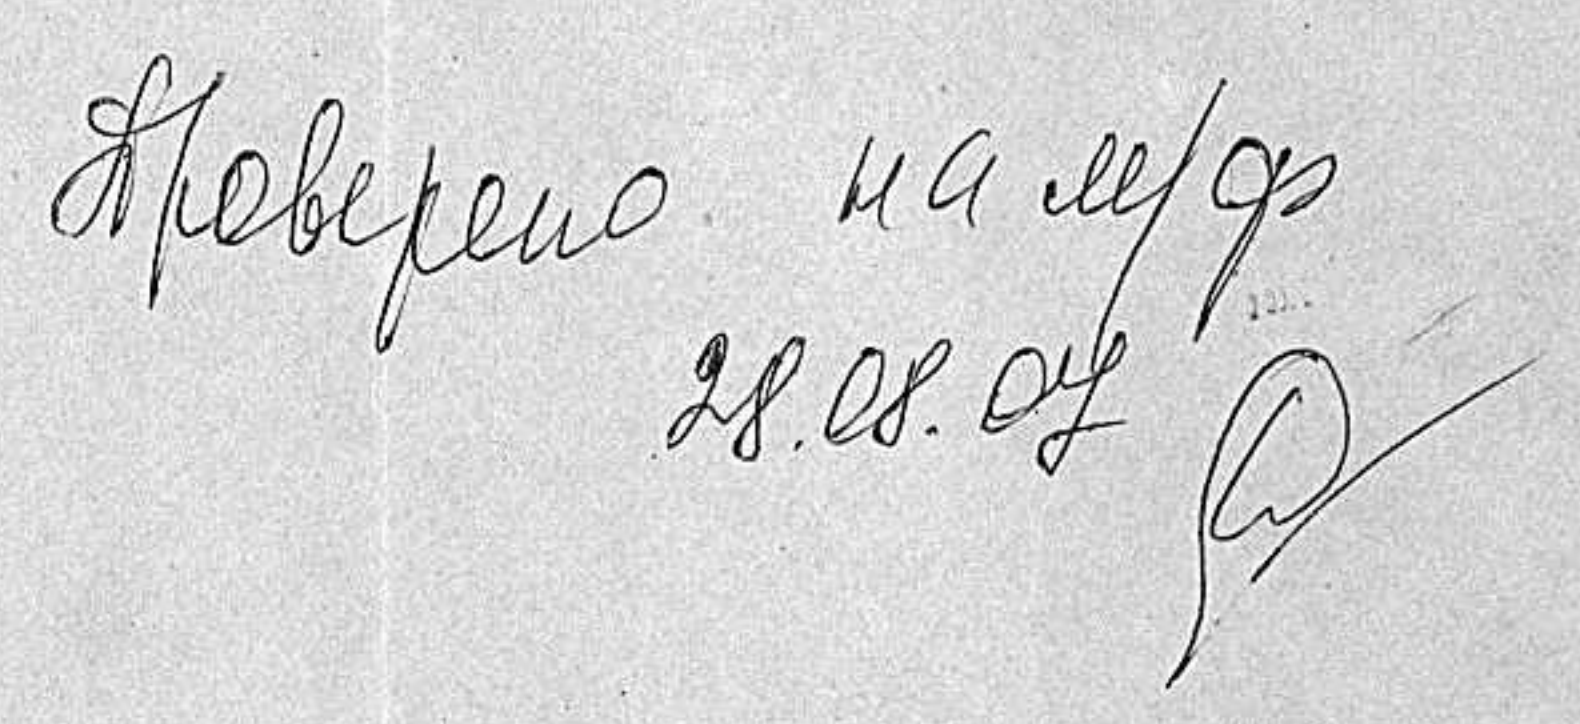 Проверено на м/ф
28.08.07